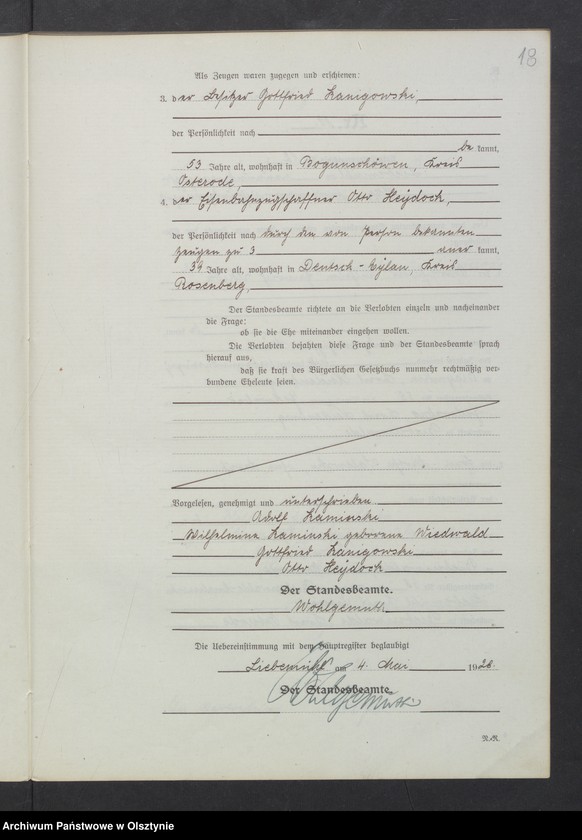 18
Als Zeugen waren zugegen und erschienen:
3. der Besitzer Gottfried Kanigowski,
der Persönlichkeit nach
be kannt,
53 Jahre alt, wohnhaft in Bogunschöwen, Kreis
Osterode,
4. der Eisenbahnzugschaffner Otto Heydock,
der Persönlichkeit nach durch den von Person bekannten
Zeugen zu 3 aner kannt,
39 Jahre alt, wohnhaft in Deutsch-Eylau, Kreis
Rosenberg,
Der Standesbeamte richtete an die Verlobten einzeln und nacheinander
die Frage:
ob sie die Ehe miteinander eingehen wollen.
Die Verlobten bejahten diese Frage und der Standesbeamte sprach
hierauf aus,
daß sie kraft des Bürgerlichen Gesetzbuchs nunmehr rechtmäßig ver-
bundene Eheleute seien.
Vorgelesen, genehmigt und unterschrieben
Adolf Kaminski
Wilhelmine Kaminski geborene Wiedwald
Gottfried Kanigowski
Otto Heydock
Der Standesbeamte.
Wohlgemuth
Die Uebereinstimmung mit dem Hauptregister beglaubigt
Liebemühl am 4. Mai 1928.
Der Standesbeamte.
Wohlgemuth
Archiwum Państwowe w Olsztynie